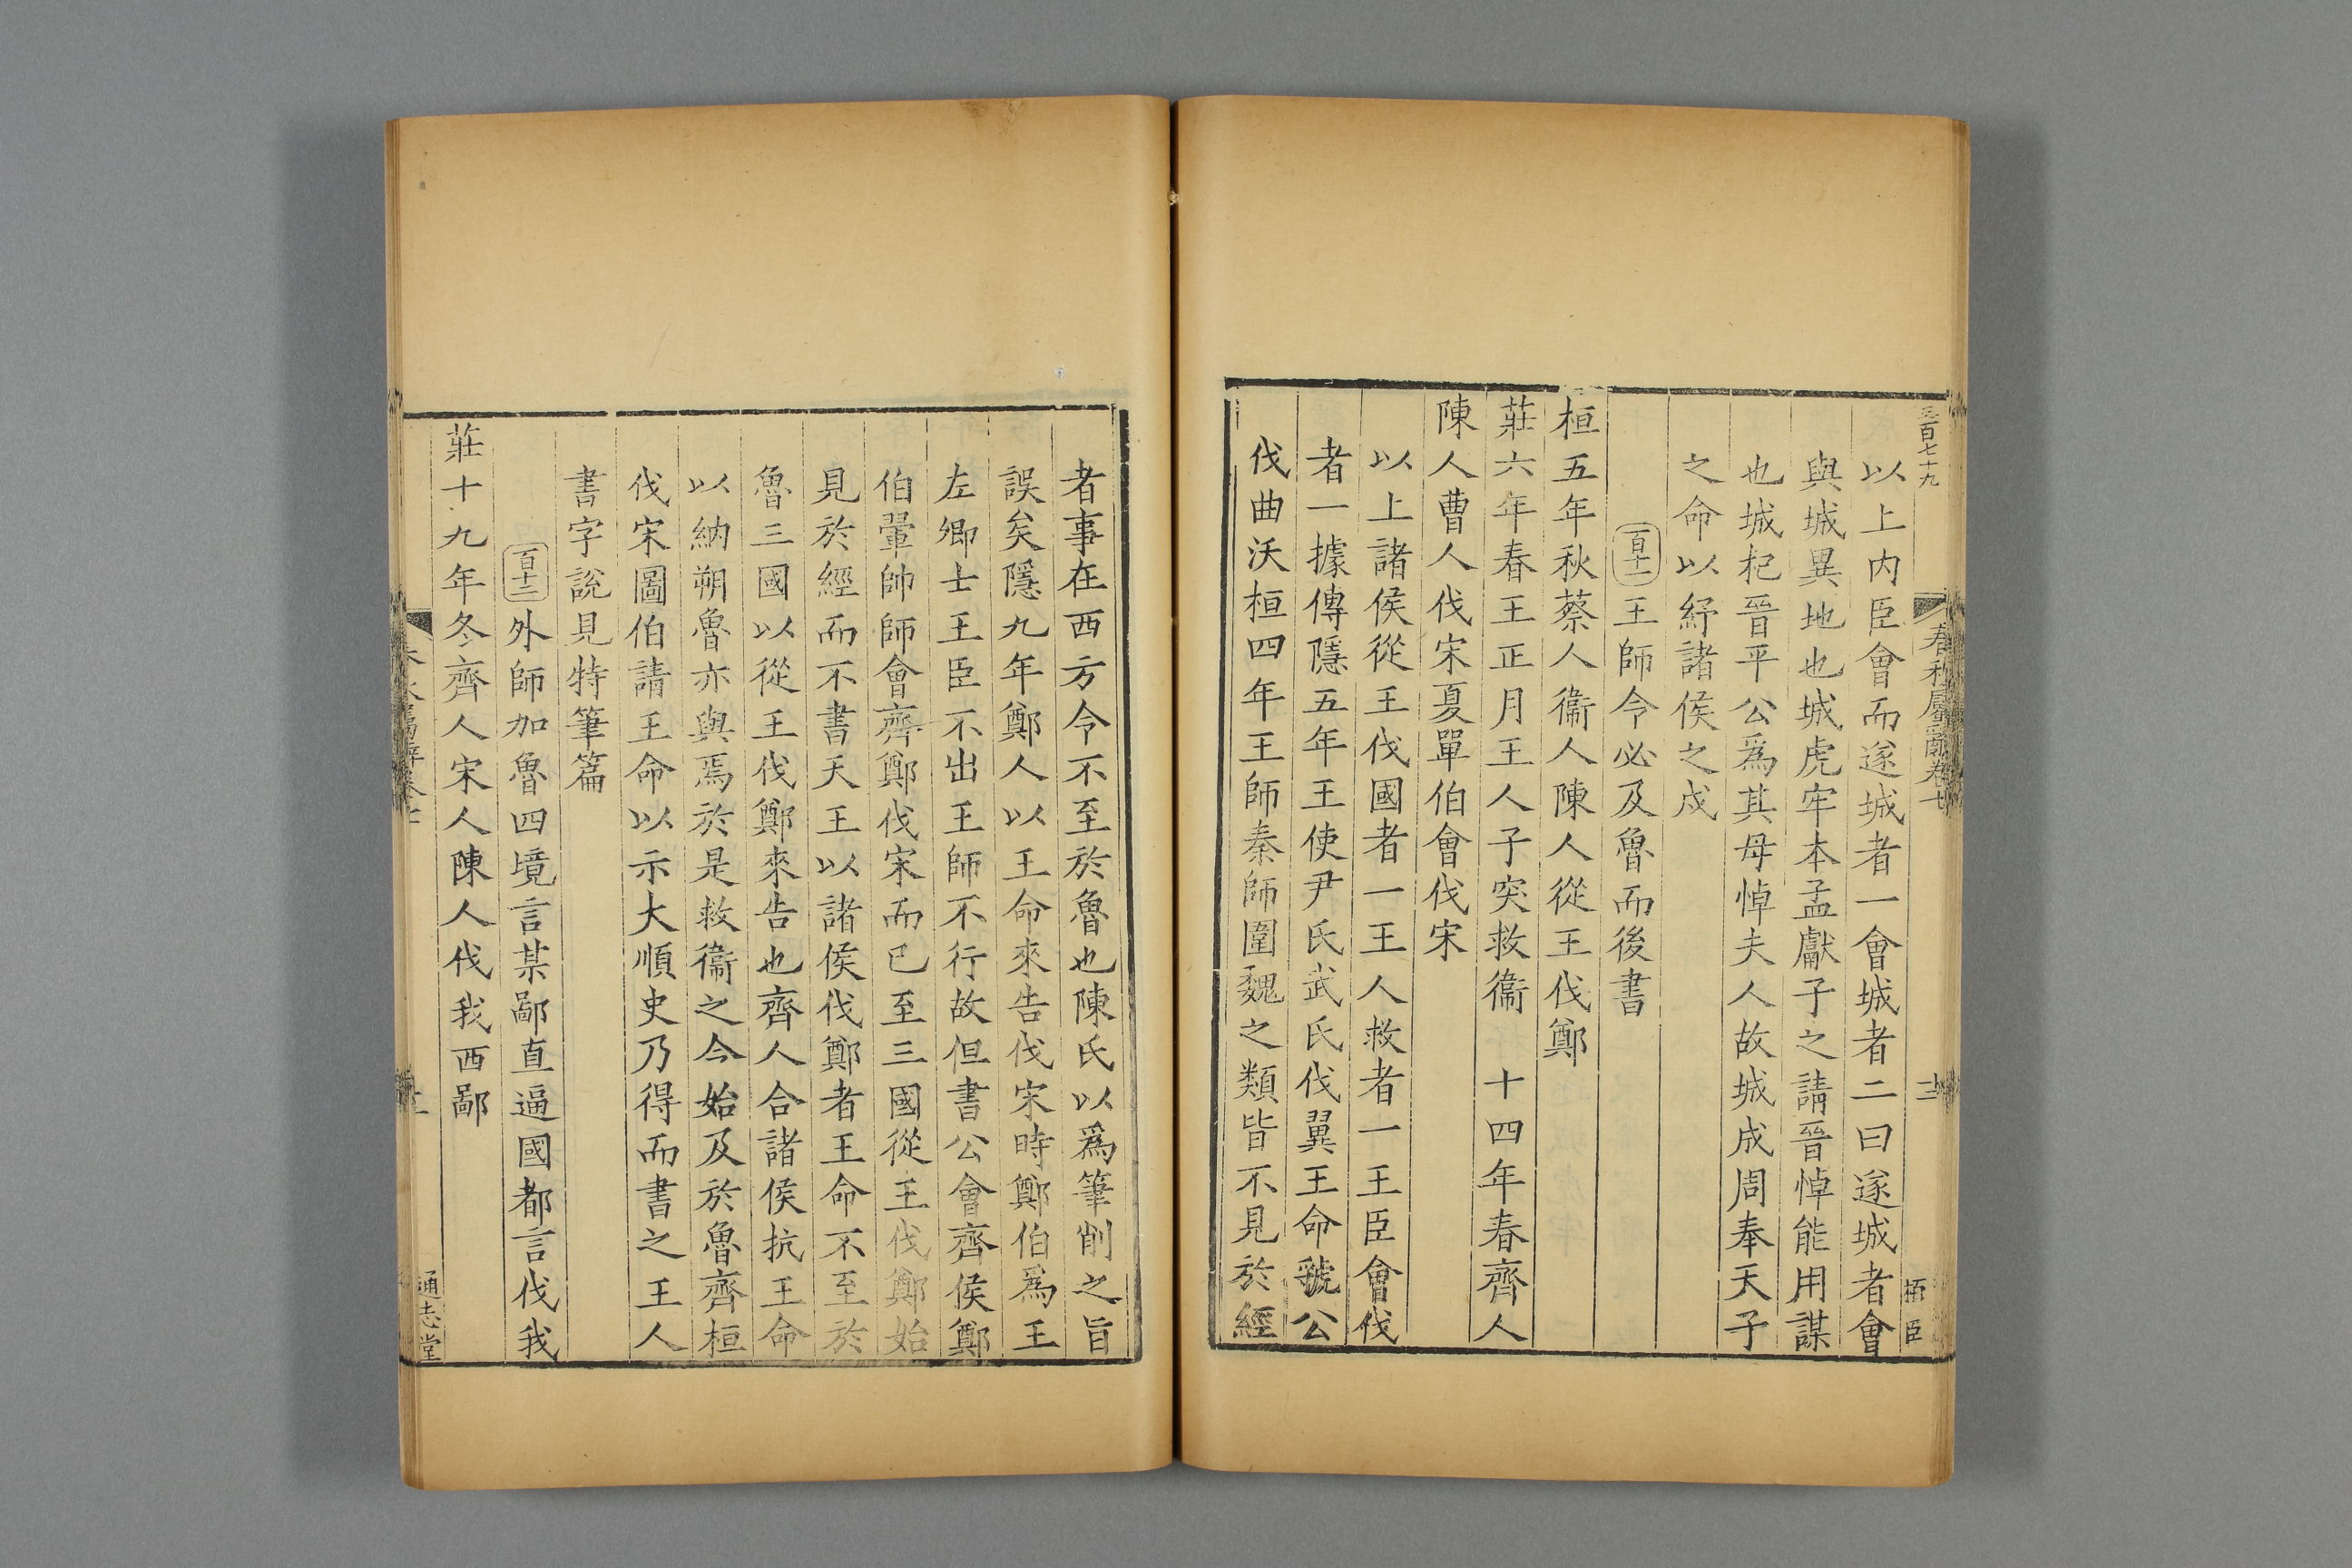 三百七十九
春秋屬辭卷七
栢臣
以上内臣會而遂城者一會城者二曰遂城者會
與城異地也城虎牢本孟獻子之請晉悼能用謀
也城杞晉平公爲其母悼夫人故城成周奉天子
之命以紓諸侯之戍
百十一王師令必及魯而後書
桓五年秋蔡人衞人陳人從王伐鄭
莊六年春王正月王人子突救衞 十四年春齊人
陳人曹人伐宋夏單伯會伐宋
以上諸侯從王伐國者一王人救者一王臣會伐
者一據傳隱五年王使尹氏武氏伐翼王命虢公
伐曲沃桓四年王師秦師圍魏之類皆不見於經
者事在西方令不至於魯也陳氏以爲筆削之旨
誤矣隱九年鄭人以王命來告伐宋時鄭伯爲王
左卿士王臣不出王師不行故但書公會齊侯鄭
伯翬帥師會齊鄭伐宋而已至三國從王伐鄭始
見於經而不書天王以諸侯伐鄭者王命不至於
魯三國以從王伐鄭來告也齊人合諸侯抗王命
以納朔魯亦與焉於是救衞之令始及於魯齊桓
伐宋圖伯請王命以示大順史乃得而書之王人
書字說見特筆篇
百十二外師加魯四境言某鄙直逼國都言伐我
莊十九年冬齊人宋人陳人伐我西鄙
通志堂